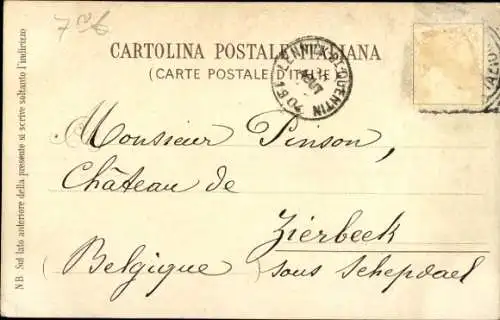 CARTOLINA POSTALE ITALIANA
(CARTE POSTALE D'ITALIE)
LENNICK-ST-QUENTIN
Monsieur Pinson,
Château de
Zierbeek
(Belgique) sous Schepdael
NB Sul lato anteriore della presente si scrive soltanto l'indirizzo